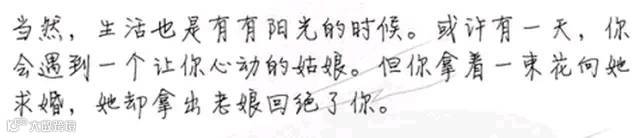 当然，生活也是有有阳光的时候。或许有一天，你
会遇到一个让你心动的姑娘。但你拿着一束花向她
求婚，她却拿出老娘回绝了你。
大众跨境